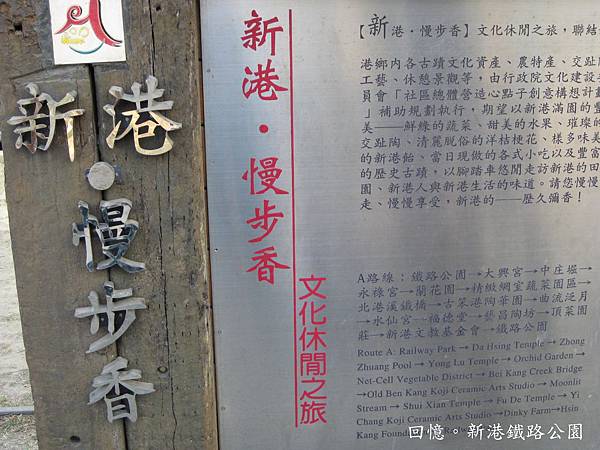 新港·慢步香
新港·慢步香
文化休閒之旅
【新港·慢步香】文化休閒之旅，聯結
港鄉內各古蹟文化資產、農特產、交趾
工藝、休憩景觀等，由行政院文化建設
員會「社區總體營造心點子創意構想計劃
」補助規劃執行，期望以新港滿園的豐
美——鮮綠的蔬菜、甜美的水果、璀璨的
交趾陶、清麗脫俗的洋桔梗花、樣多味美
的新港飴、當日現做的各式小吃以及豐富
的歷史古蹟，以腳踏車悠閒走訪新港的田
園、新港人與新港生活的味道。請您慢慢
走、慢慢享受，新港的——歷久彌香！
A路線：鐵路公園→大興宮→中庄堀→
永祿宮→蘭花園→精緻網室蔬菜園區→
北港溪鐵橋→古笨港陶華園→曲流泛月
→水仙宮→福德堂→藝昌陶坊→頂菜園
莊→新港文教基金會→鐵路公園
Route A: Railway Park → Da Hsing Temple → Zhong
Zhuang Pool → Yong Lu Temple → Orchid Garden →
Net-Cell Vegetable District → Bei Kang Creek Bridge
→Old Ben Kang Koji Ceramic Arts Studio → Moonlit
Stream → Shui Xian Temple → Fu De Temple → Yi
Chang Koji Ceramic Arts Studio →Dinky Farm→Hsin
Kang Found
回憶。新港鐵路公園